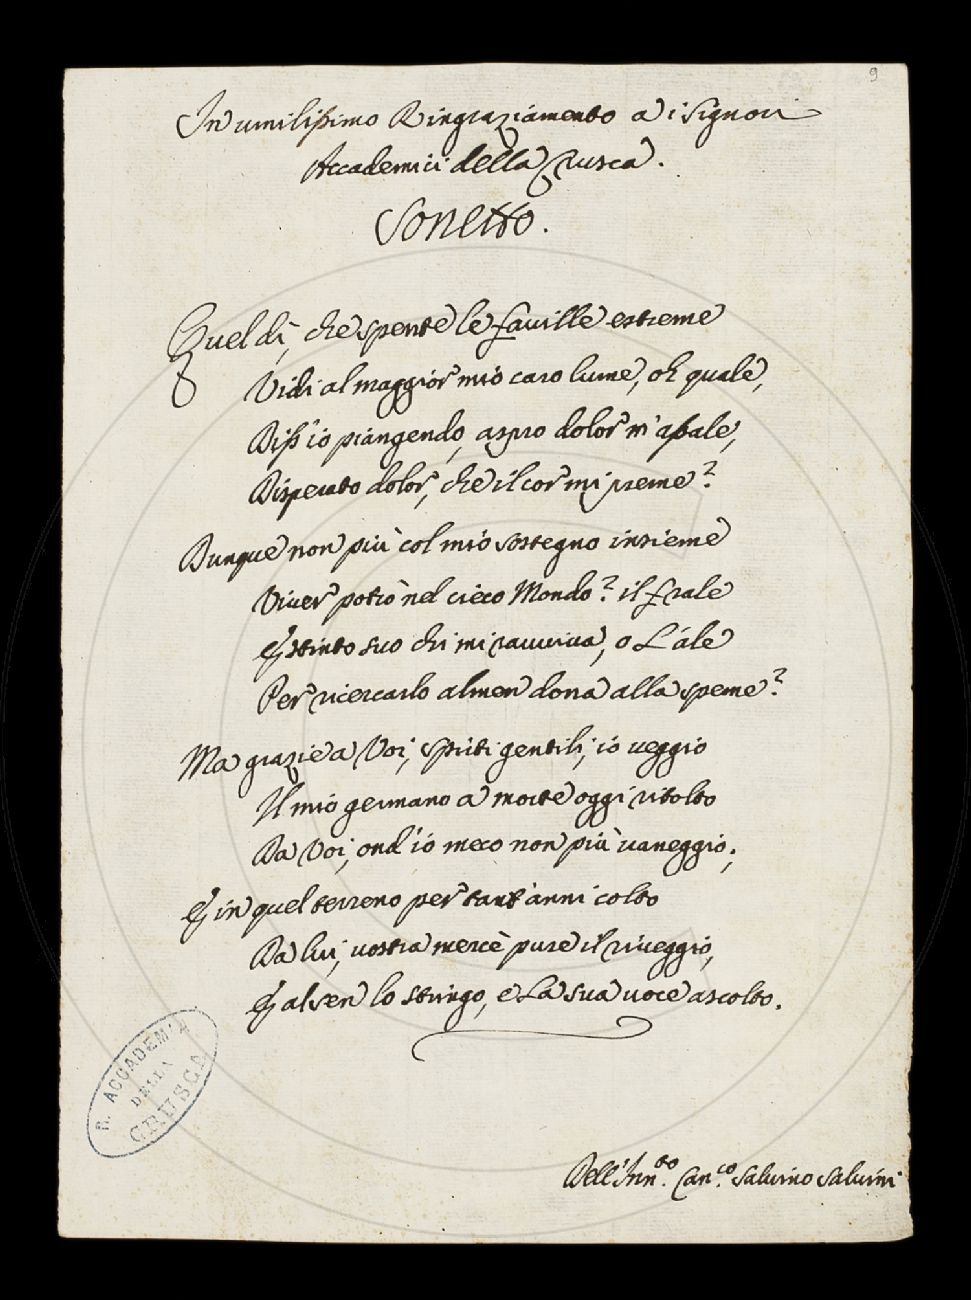 9
In umilissimo Ringraziamento a i Signori
Accademici della Crusca.
Sonetto.
Quel dì, che spente le faville estreme
Vidi al maggior mio caro lume, oh quale,
Diss'io piangendo, aspro dolor m'assale,
Disperato dolor, che il cor mi preme?
Dunque non più col mio sostegno insieme
Viver potrò nel cieco Mondo? il frale
Estinto suo chi mi ravviva, o L'ale
Per ricercarlo almen dona alla speme?
Ma grazie a Voi, Spirti gentili, io veggio
Il mio germano a morte oggi ritolto
Da Voi, ond'io meco non più vaneggio;
E in quel terreno per tant'anni colto
Da lui, vostra mercè pure il riveggio,
E al sen lo stringo, e La sua voce ascolto.
R. ACCADEMIA
DELLA
CRUSCA
Dell'Inn.to Can.co Salvino Salvini